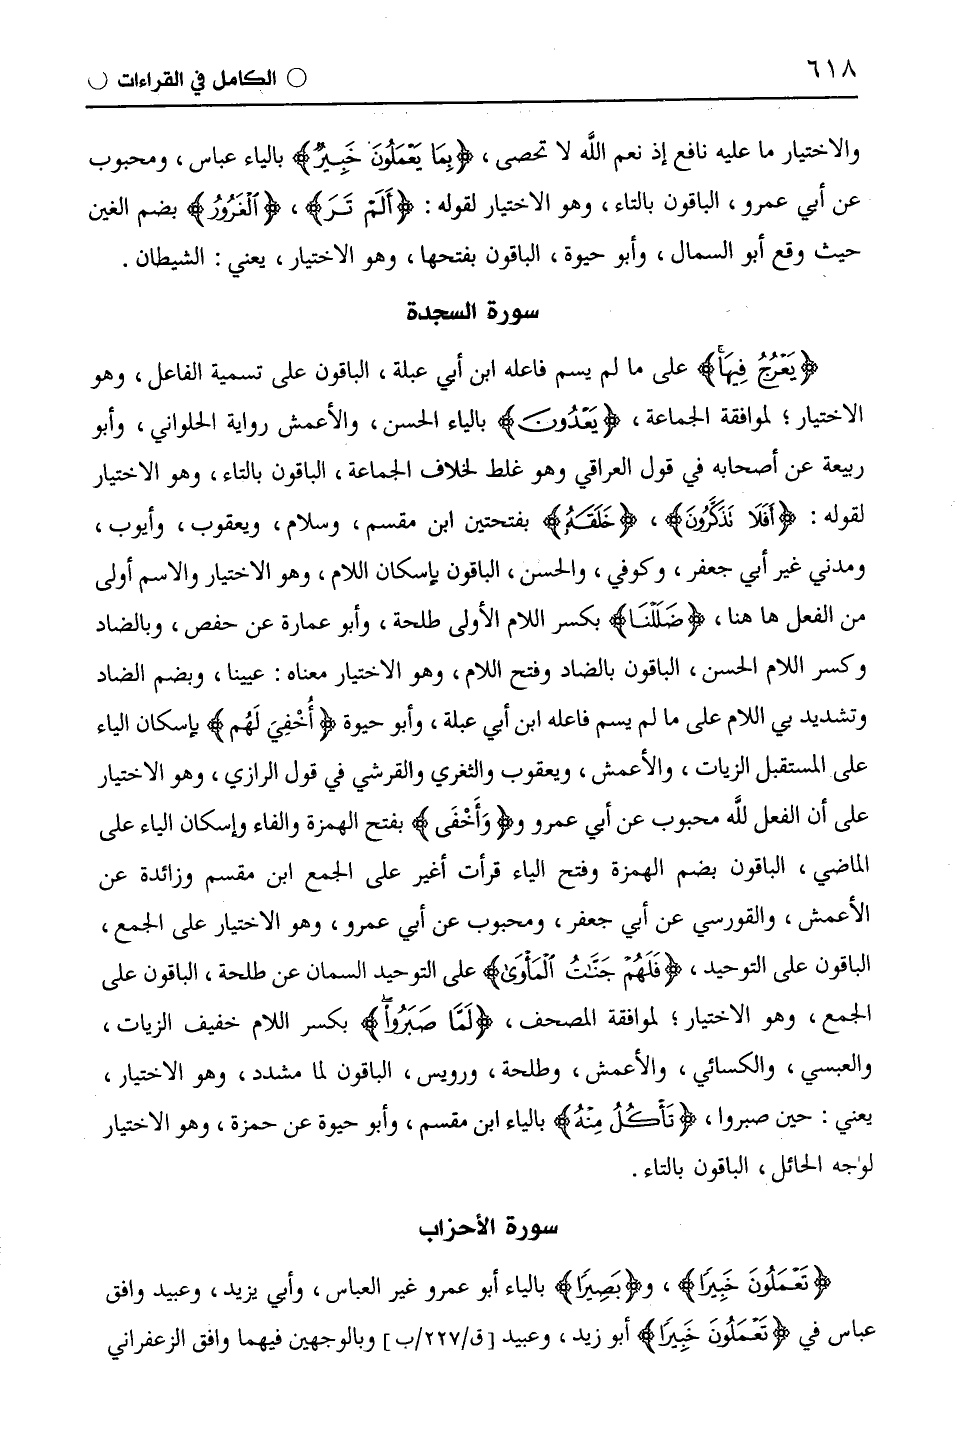 ٦١٨
الكامل في القراءات
والاختيار ما عليه نافع إذ نعم الله لا تحصى ، ﴿بِمَا يَعْمَلُونَ خَبِيرٌ﴾ بالياء عباس ، ومحبوب
عن أبي عمرو ، الباقون بالتاء ، وهو الاختيار لقوله : ﴿أَلَمْ تَرَ﴾ ، ﴿الْغَرُورُ﴾ بضم الغين
حيث وقع أبو السمال ، وأبو حيوة ، الباقون بفتحها ، وهو الاختيار ، يعني : الشيطان .
سورة السجدة
﴿يَعْرُجُ فِيهَا﴾ على ما لم يسم فاعله ابن أبي عبلة ، الباقون على تسمية الفاعل ، وهو
الاختيار ؛ لموافقة الجماعة ، ﴿يَعُدُّونَ﴾ بالياء الحسن ، والأعمش رواية الحلواني ، وأبو
ربيعة عن أصحابه في قول العراقي وهو غلط لخلاف الجماعة ، الباقون بالتاء ، وهو الاختيار
لقوله : ﴿أَفَلَا تَذَكَّرُونَ﴾ ، ﴿خَلَقَهُ﴾ بفتحتين ابن مقسم ، وسلام ، ويعقوب ، وأيوب ،
ومدني غير أبي جعفر ، وكوفي ، والحسن ، الباقون بإسكان اللام ، وهو الاختيار والاسم أولى
من الفعل ها هنا ، ﴿ضَلَلْنَا﴾ بكسر اللام الأولى طلحة ، وأبو عمارة عن حفص ، وبالضاد
وكسر اللام الحسن ، الباقون بالضاد وفتح اللام ، وهو الاختيار معناه : عيينا ، وبضم الضاد
وتشديد بي اللام على ما لم يسم فاعله ابن أبي عبلة ، وأبو حيوة ﴿أُخْفِيَ لَهُم﴾ بإسكان الياء
على المستقبل الزيات ، والأعمش ، ويعقوب والثغري والقرشي في قول الرازي ، وهو الاختيار
على أن الفعل لله محبوب عن أبي عمرو و﴿وَأَخْفَى﴾ بفتح الهمزة والفاء وإسكان الياء على
الماضي ، الباقون بضم الهمزة وفتح الياء قرأت أغير على الجمع ابن مقسم وزائدة عن
الأعمش ، والقورسي عن أبي جعفر ، ومحبوب عن أبي عمرو ، وهو الاختيار على الجمع ،
الباقون على التوحيد ، ﴿فَلَهُمْ جَنَّاتُ الْمَأْوَىٰ﴾ على التوحيد السمان عن طلحة ، الباقون على
الجمع ، وهو الاختيار ؛ لموافقة المصحف ، ﴿لَمَّا صَبَرُوا﴾ بكسر اللام خفيف الزيات ،
والعبسي ، والكسائي ، والأعمش ، وطلحة ، ورويس ، الباقون لما مشدد ، وهو الاختيار ،
يعني : حين صبروا ، ﴿تَأْكُلُ مِنْهُ﴾ بالياء ابن مقسم ، وأبو حيوة عن حمزة ، وهو الاختيار
لوجه الحائل ، الباقون بالتاء .
سورة الأحزاب
﴿تَعْمَلُونَ خَبِيرًا﴾ ، و﴿بَصِيرًا﴾ بالياء أبو عمرو غير العباس ، وأبي يزيد ، وعبيد وافق
عباس في ﴿تَعْمَلُونَ خَبِيرًا﴾ أبو زيد ، وعبيد [ق/٢٢٧/ب] وبالوجهين فيهما وافق الزعفراني